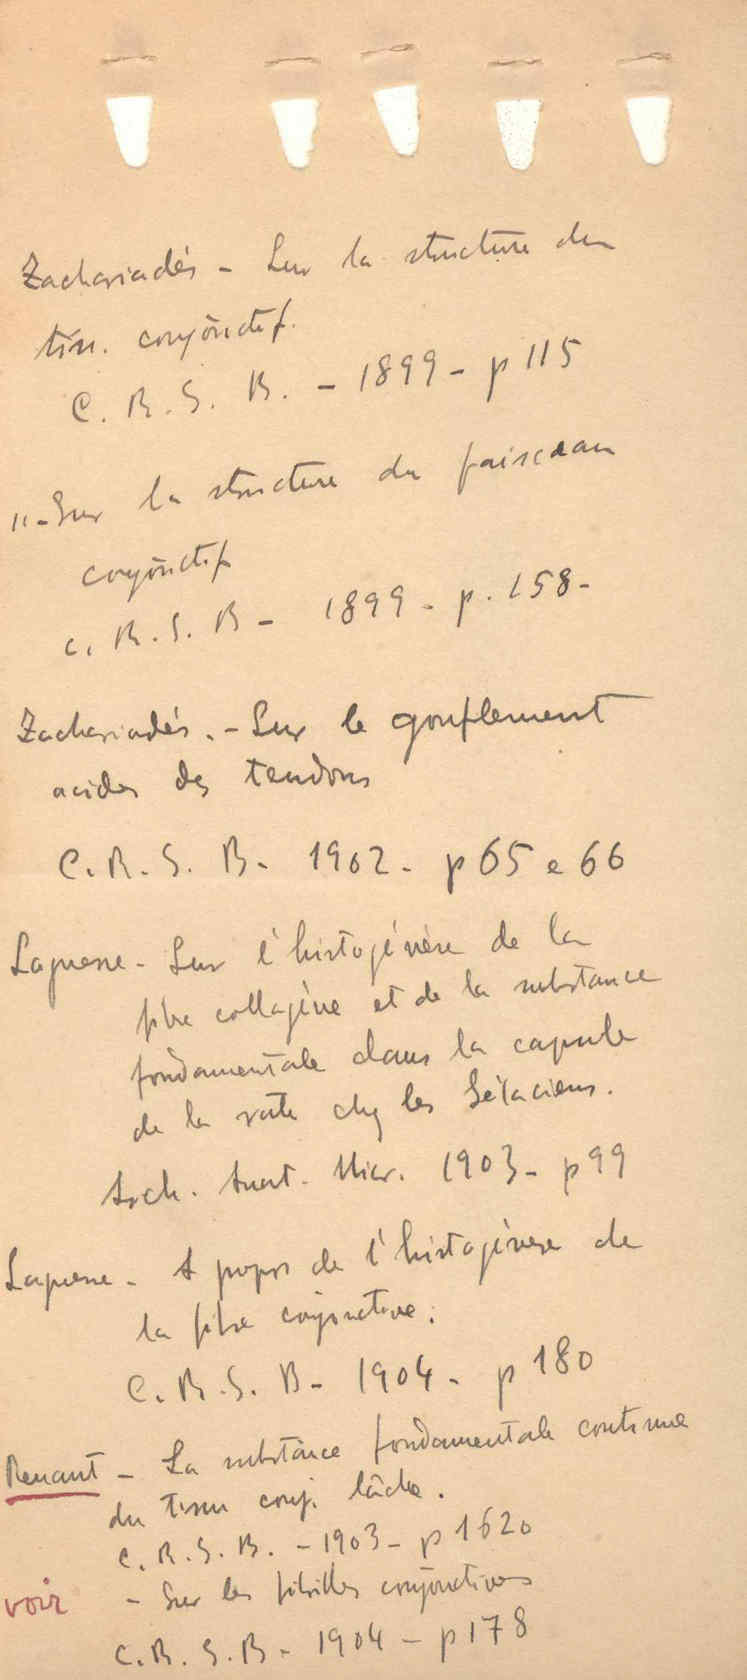 Zachariadès - Sur la structure du
tiss. conjonctif.
C. R. S. B. - 1899 - p 115
" - Sur la structure du faisceau
conjonctif
C. R. S. B - 1899 - p. 158 -
Zachariadès. - Sur le gonflement
acides des tendons
C. R. S. B - 1902 - p 65 e 66
Laguesse - Sur l'histogénèse de la
fibre collagène et de la substance
fondamentale dans la capsule
de la rate chez les Sélaciens.
Arch. Anat. Micr. 1903 - p 99
Laguesse - A propos de l'histogénèse de
la fibre conjonctive.
C. R. S. B - 1904 - p 180
Renaut - La substance fondamentale continue
du tissu conj. lâche.
C. R. S. B. - 1903 - p 1620
voir - Sur les fibrilles conjonctives
C. R. S. B - 1904 - p 178